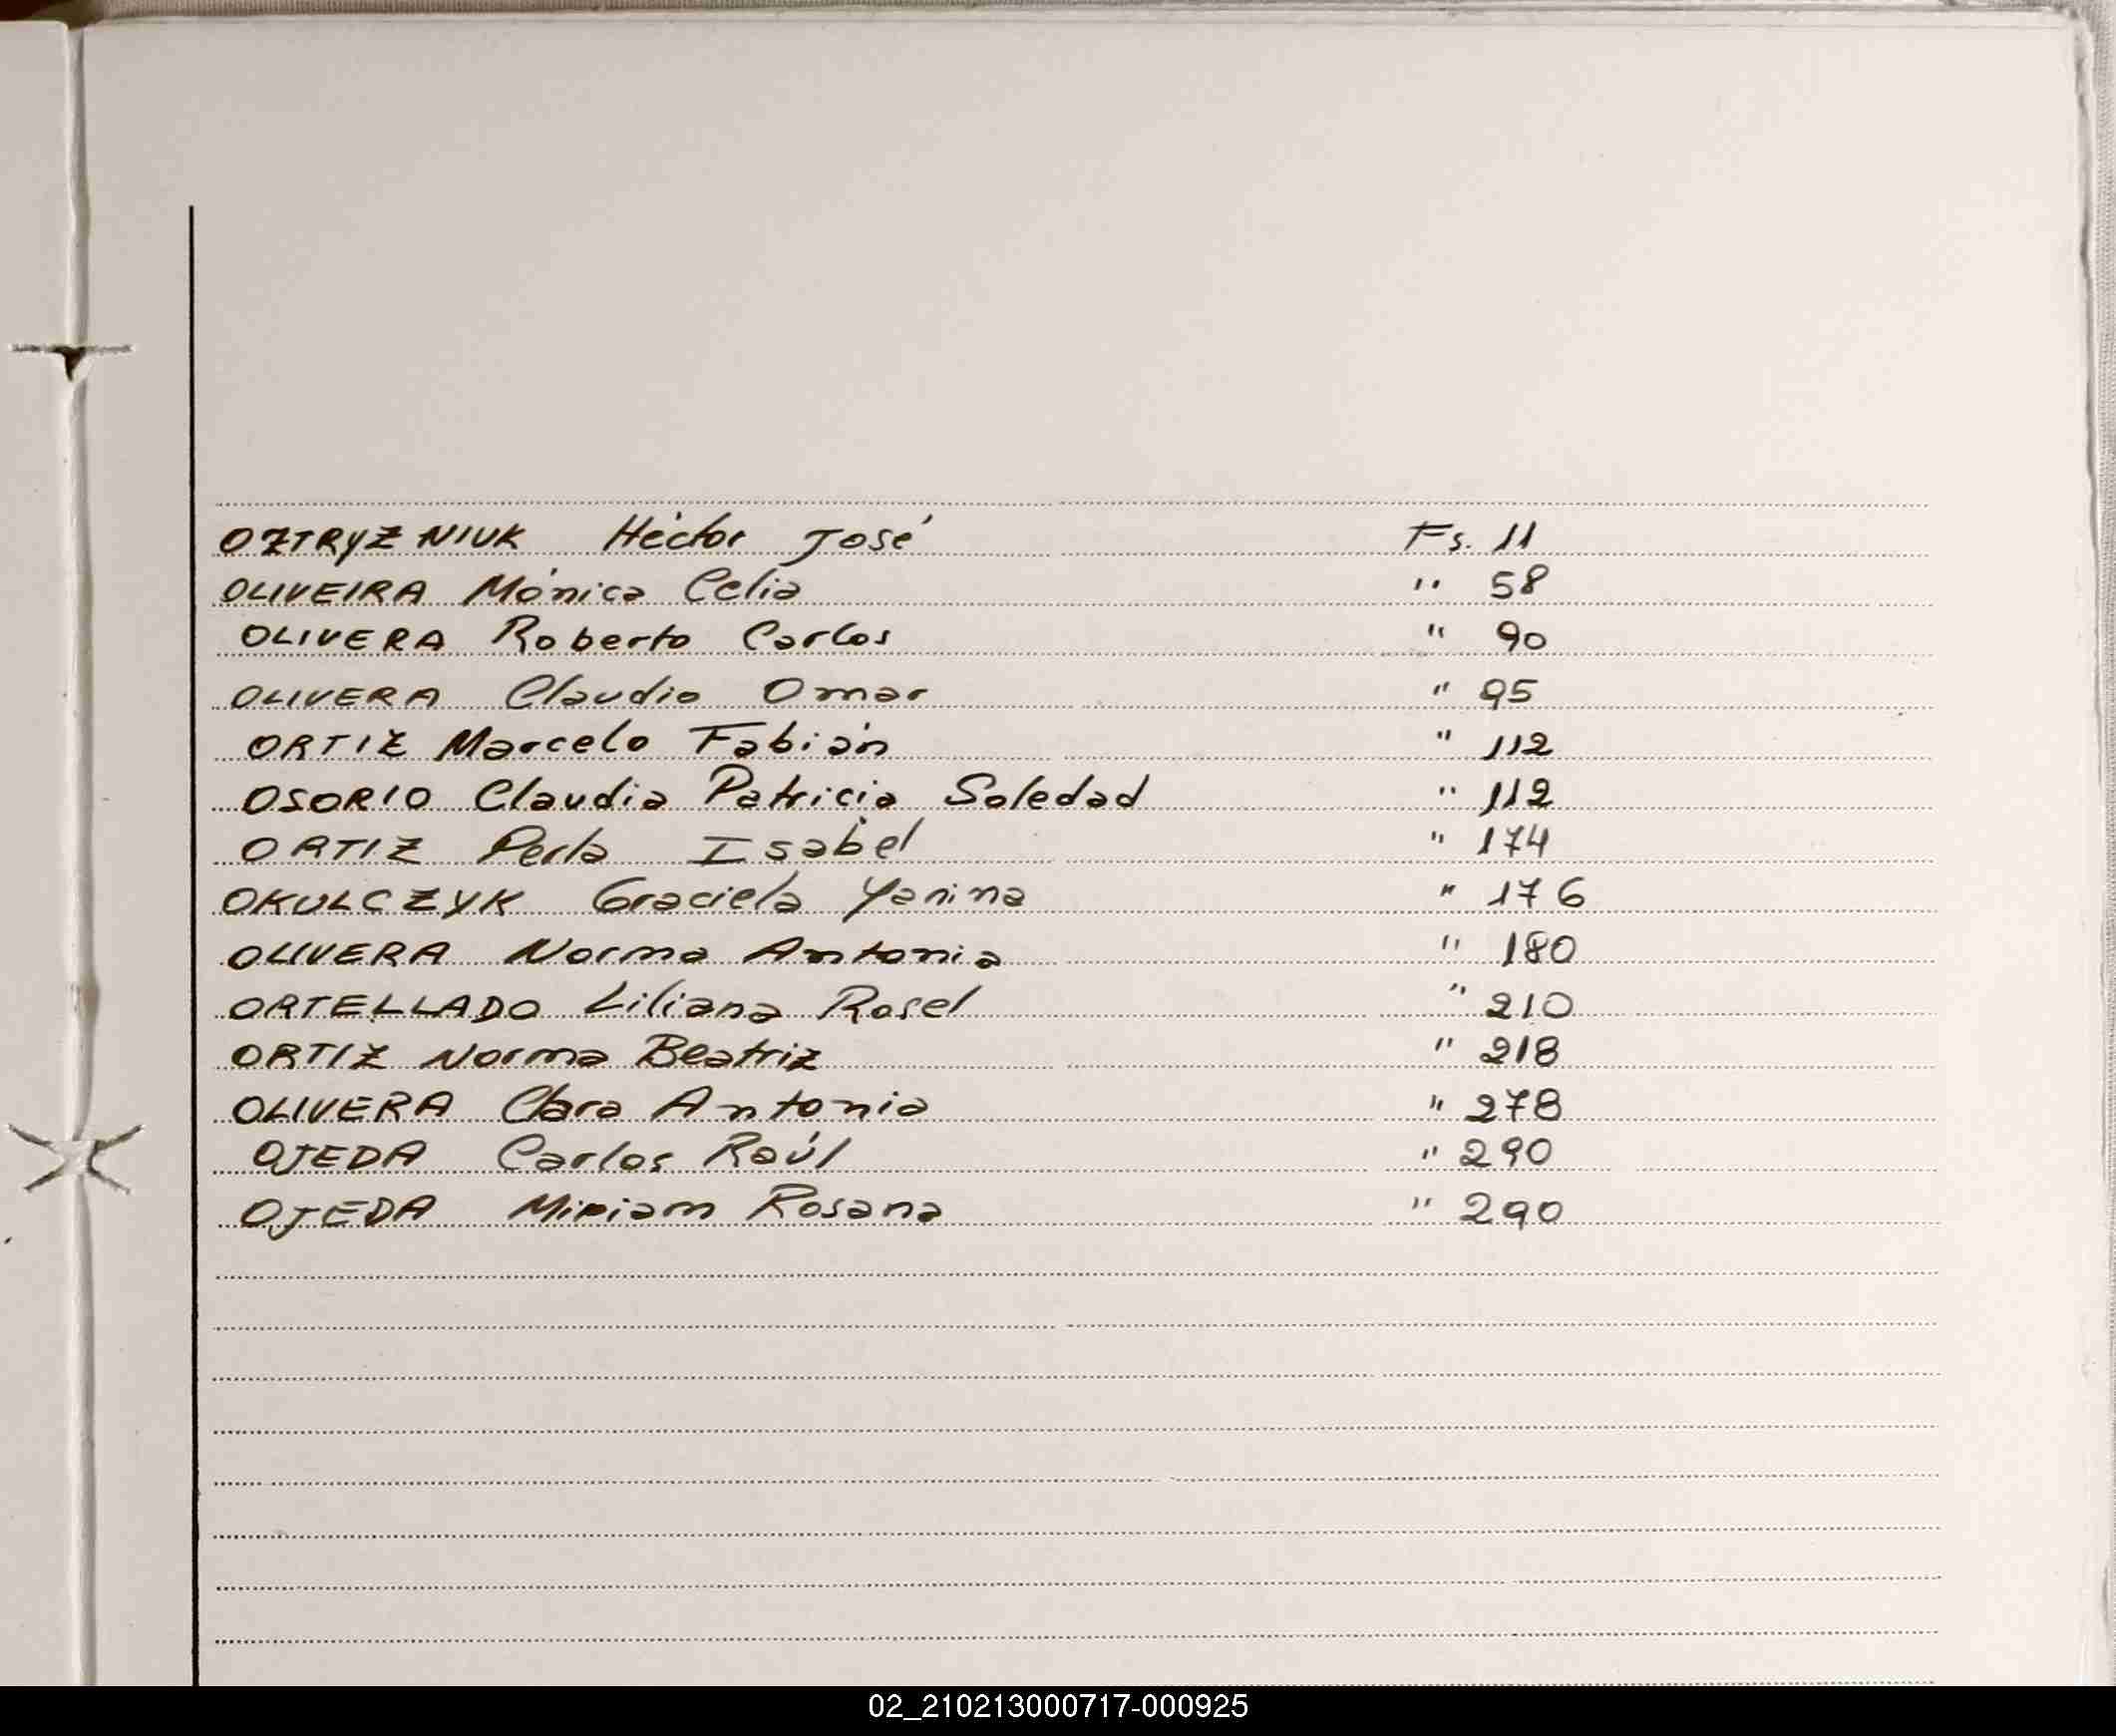 OZTRYZNIUK Héctor José Fs. 11
OLIVEIRA Mónica Celia " 58
OLIVERA Roberto Carlos " 90
OLIVERA Claudio Omar " 95
ORTIZ Marcelo Fabián " 112
OSORIO Claudia Patricia Soledad " 112
ORTIZ Perla Isabel " 174
OKULCZYK Graciela Yanina " 176
OLIVERA Norma Antonia " 180
ORTELLADO Liliana Rosel " 210
ORTIZ Norma Beatriz " 218
OLIVERA Clara Antonia " 278
OJEDA Carlos Raúl " 290
OJEDA Miriam Rosana " 290
02_210213000717-000925